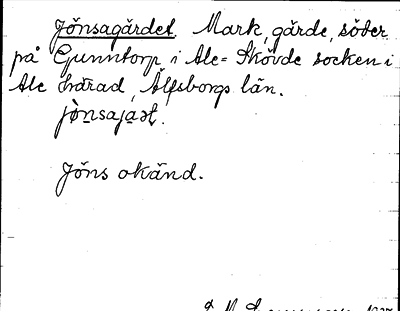 Jönsagärdet. Mark, gärde, söder
på Gunntorp i Ale-Skövde socken i
Ale härad, Älfsborgs län.
Jöns okänd.